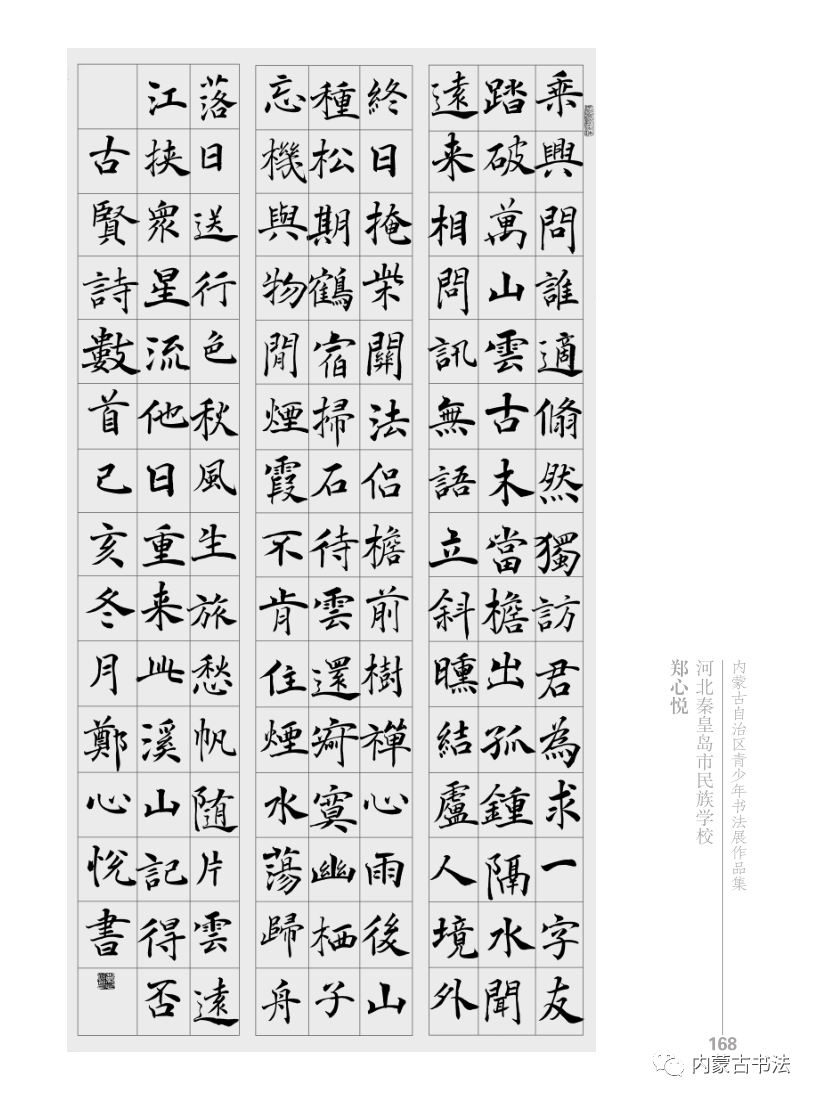 乘興問誰適翛然獨訪君為求一字友
踏破萬山雲古木當檐出孤鍾隔水聞
遠来相問訊無語立斜曛結廬人境外
終日掩柴關法侶檐前樹禅心雨後山
種松期鶴宿掃石待雲還寂寞幽栖子
忘機與物閒煙霞不肯住煙水蕩歸舟
落日送行色秋風生旅愁帆随片雲遠
江挟眾星流他日重来此溪山記得否
古賢詩數首己亥冬月鄭心悅書
内蒙古自治区青少年书法展作品集
河北秦皇岛市民族学校
郑心悦
168
内蒙古书法